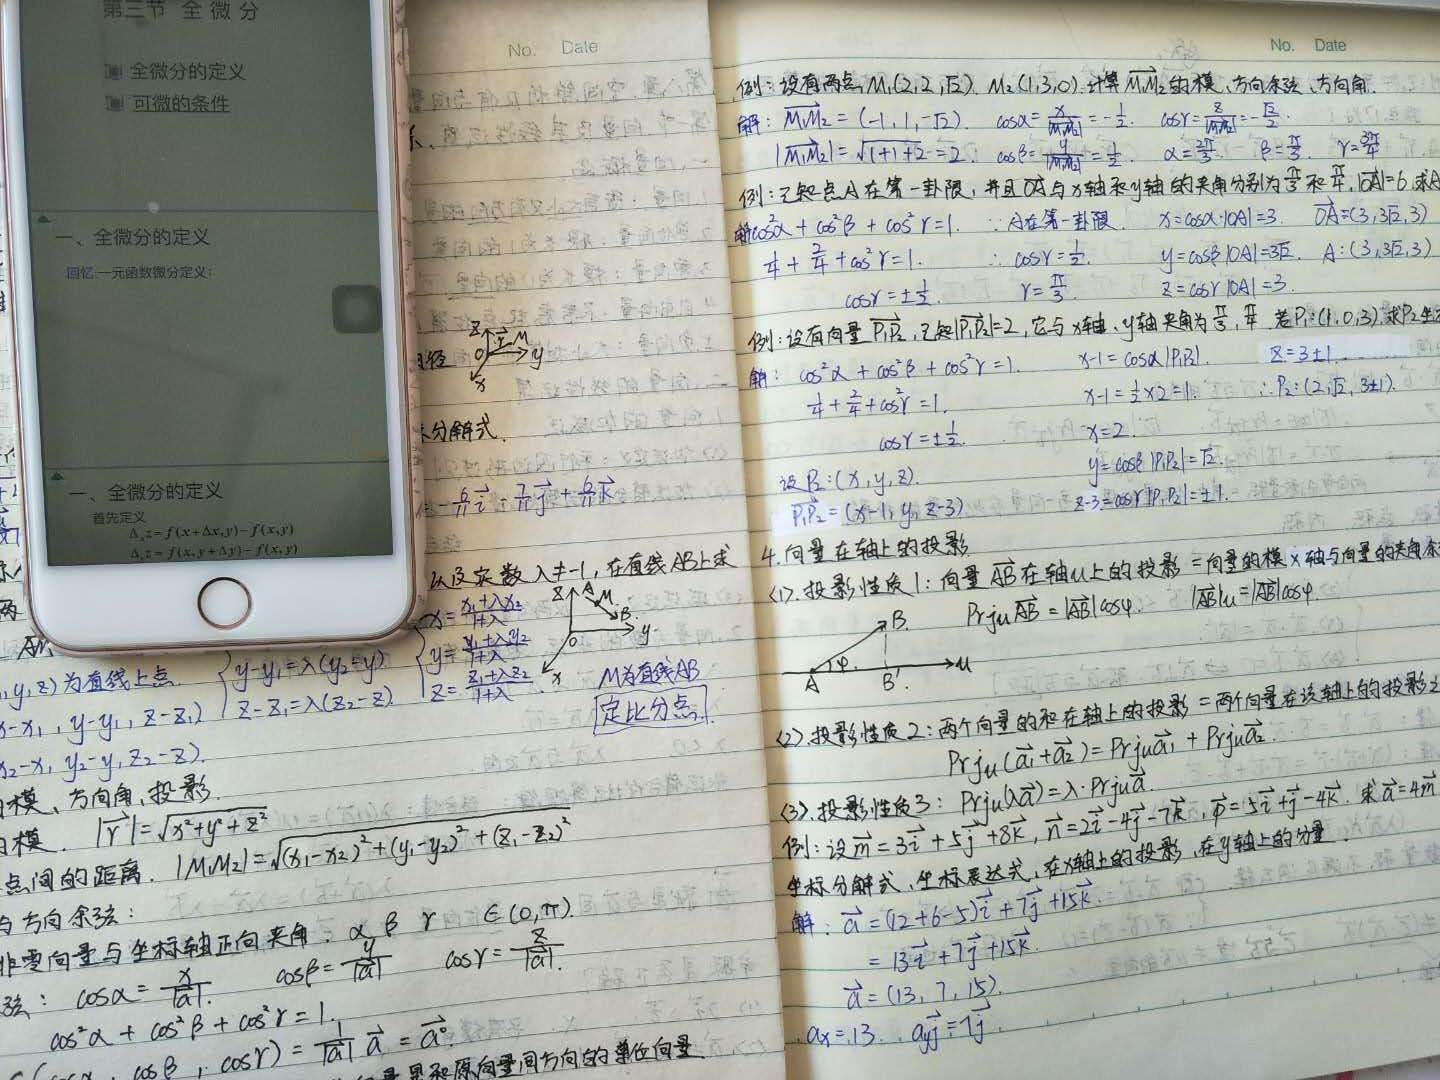 第三节 全微分
全微分的定义
可微的条件
一、全微分的定义
回忆:一元函数微分定义:
一、全微分的定义
首先定义
Δₓz=f(x+Δx,y)-f(x,y)
Δᵧz=f(x,y+Δy)-f(x,y)
No. Date
分解式.
-6/11 i⃗ + 7/11 j⃗ + 6/11 k⃗
以及实数 λ≠-1, 在直线AB上求
x = (x₁+λx₂)/(1+λ)
y = (y₁+λy₂)/(1+λ)
z = (z₁+λz₂)/(1+λ)
,y,z)为直线上点.
y-y₁=λ(y₂-y)
z-z₁=λ(z₂-z)
x-x₁, y-y₁, z-z₁)
x₂-x, y₂-y, z₂-z).
M为直线AB
定比分点.
模、方向角、投影.
模. |r⃗|=√(x²+y²+z²)
点间的距离. |M₁M₂|=√((x₁-x₂)²+(y₁-y₂)²+(z₁-z₂)²)
与方向余弦:
非零向量与坐标轴正向夹角. α β γ ∈(0,π).
弦: cosα = x/|a⃗|. cosβ = y/|a⃗| cosγ = z/|a⃗|.
cos²α + cos²β + cos²γ = 1.
cosβ, cosγ) = 1/|a⃗| a⃗ = a⃗°
是和原向量同方向的单位向量
No. Date
例:设有两点M₁(2,2,√2). M₂(1,3,0).计算M₁M₂的模、方向余弦、方向角.
解: M₁M₂ = (-1,1,-√2). cosα = x/|M₁M₂| = -1/2. cosγ = z/|M₁M₂| = -√2/2.
|M₁M₂| = √(1+1+2) = 2. cosβ = y/|M₁M₂| = 1/2. α = 2π/3. β = π/3. γ = 3π/4
例:已知点A在第一卦限,并且OA与x轴和y轴的夹角分别为π/3和π/4.|OA|=6.求A
解cos²α + cos²β + cos²γ = 1. ∵A在第一卦限. x=cosα·|OA|=3. OA=(3,3√2,3)
1/4 + 2/4 + cos²γ = 1. ∴ cosγ = 1/2. y=cosβ|OA|=3√2. A:(3,3√2,3)
cosγ = ±1/2. γ = π/3. z=cosγ|OA|=3.
例:设有向量P₁P₂,已知|P₁P₂|=2,它与x轴、y轴夹角为π/3,π/4.若P₁:(1,0,3).求P₂坐
解: cos²α + cos²β + cos²γ = 1. x-1 = cosα|P₁P₂|. z=3±1.
1/4 + 2/4 + cos²γ = 1. x-1 = 1/2×2 = 1. ∴P₂:(2,√2,3±1).
cosγ = ±1/2. x=2.
设P₂:(x,y,z). y=cosβ|P₁P₂|=√2.
P₁P₂ = (x-1,y,z-3) z-3=cosγ|P₁P₂|=±1.
4.向量在轴上的投影
<1>.投影性质1:向量AB在轴u上的投影=向量的模×轴与向量的夹角余
PrjᵤAB = |AB|cosφ. |AB|ᵤ=|AB|cosφ.
<2>.投影性质2:两个向量的和在轴上的投影=两个向量在该轴上的投影之
Prjᵤ(a⃗₁+a⃗₂)=Prjᵤa⃗₁+Prjᵤa⃗₂.
<3>.投影性质3: Prjᵤ(λa⃗)=λ·Prjᵤa⃗.
例:设m⃗=3i⃗+5j⃗+8k⃗, n⃗=2i⃗-4j⃗-7k⃗, p⃗=5i⃗+j⃗-4k⃗. 求a⃗=4m⃗
坐标分解式、坐标表达式,在x轴上的投影,在y轴上的分量
解: a⃗=(12+6-5)i⃗+7j⃗+15k⃗.
= 13i⃗+7j⃗+15k⃗.
a⃗=(13,7,15).
aₓ=13. aᵧj⃗=7j⃗.